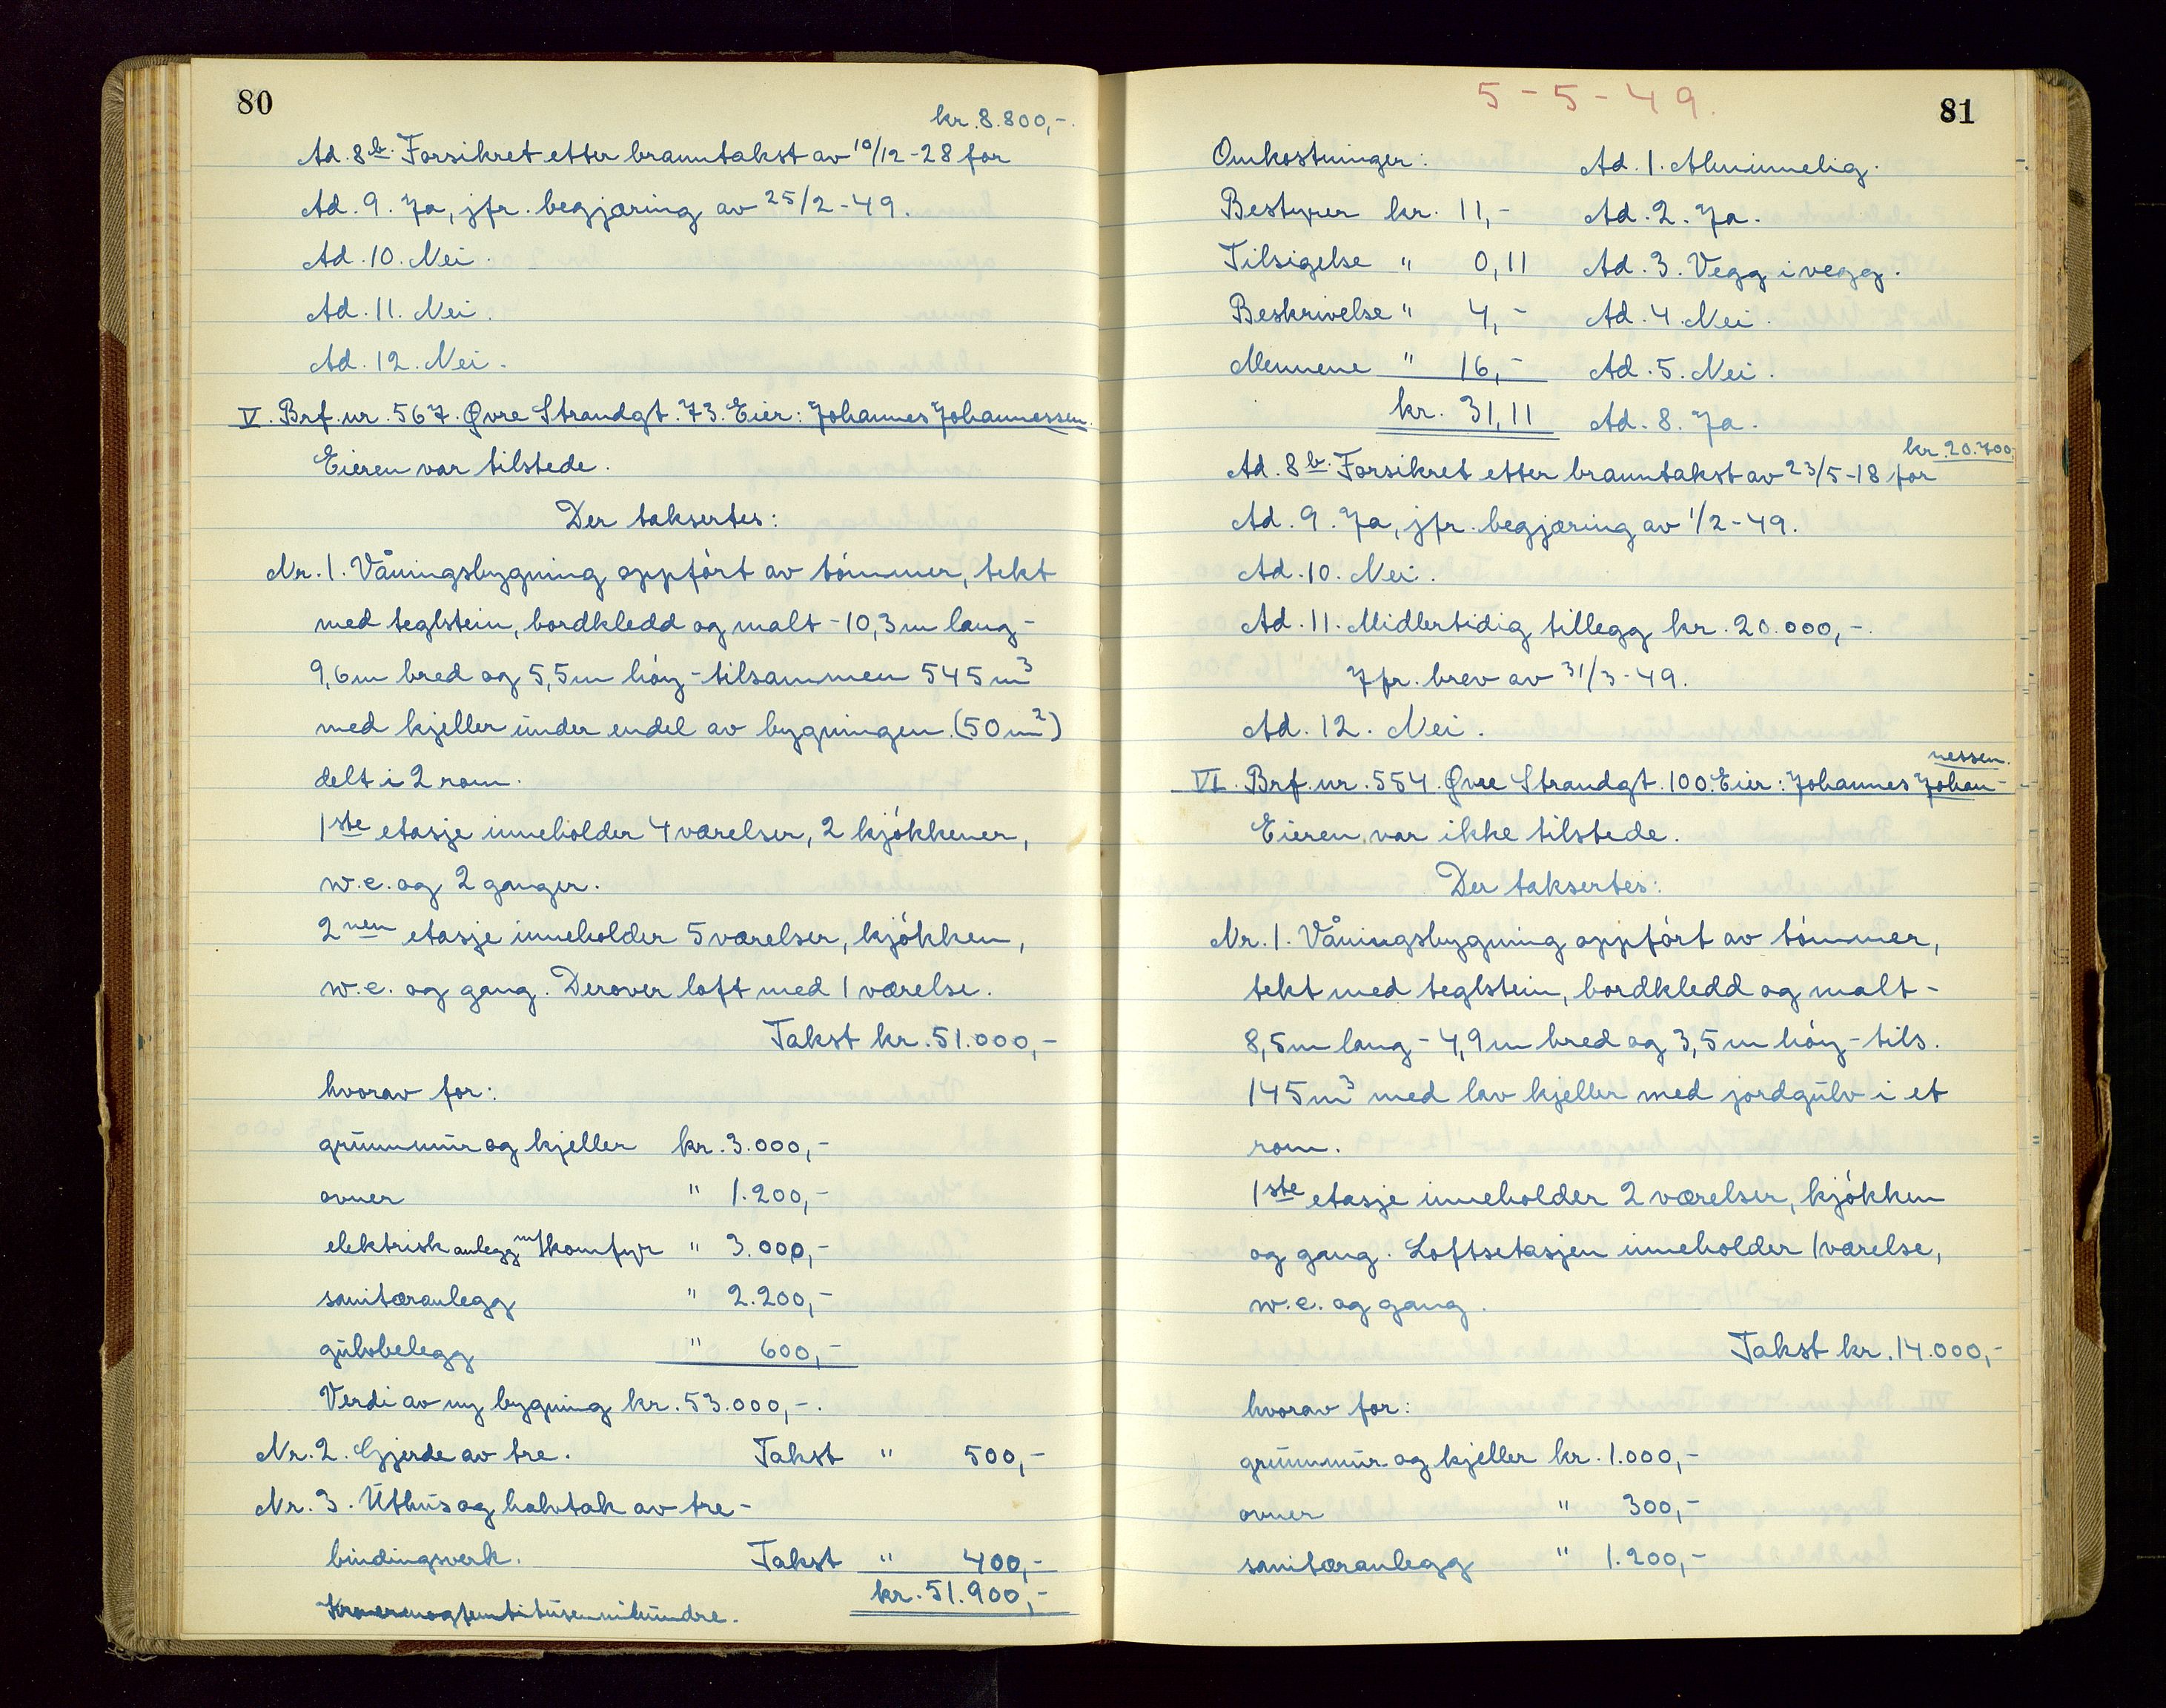 80
kr. 8.800,-.
Ad. 8 b. Forsikret etter branntakst av 10/12-28 for
Ad. 9. Ja, jfr. begjæring av 25/2-49.
Ad. 10. Nei.
Ad. 11. Nei.
Ad. 12. Nei.
V. Brf. nr. 567. Øvre Strandgt. 73. Eier: Johannes Johannessen.
Eieren var tilstede.
Der taksertes:
Nr. 1. Våningsbygning oppført av tømmer, tekt
med teglstein, bordkledd og malt - 10,3 m lang -
9,6 m bred og 5,5 m høy - tilsammen 545 m³
med kjeller under endel av bygningen (50 m²)
delt i 2 rom.
1ste etasje inneholder 4 værelser, 2 kjøkkener,
w.c. og 2 ganger.
2nen etasje inneholder 5 værelser, kjøkken,
w.c. og gang. Derover loft med 1 værelse.
Takst kr. 51.000,-
hvorav for:
grunnmur og kjeller kr. 3.000,-
ovner " 1.200,-
elektrisk anlegg m/komfyr " 3.000,-
sanitæranlegg " 2.200,-
gulvbelegg " 600,-
Verdi av ny bygning kr. 53.000,-.
Nr. 2. Gjerde av tre. Takst " 500,-
Nr. 3. Uthus og halvtak av tre-
bindingsverk. Takst " 400,-
kr. 51.900,-
Kronerenogfemtitusennihundre.
5-5-49.
81
Omkostninger: Ad. 1. Alminnelig.
Bestyrer kr. 11,- Ad. 2. Ja.
Tilsigelse " 0,11 Ad. 3. Vegg i vegg.
Beskrivelse " 4,- Ad. 4. Nei.
Mennene " 16,- Ad. 5. Nei.
kr. 31,11 Ad. 8. Ja.
kr. 20.700,
Ad. 8 b. Forsikret etter branntakst av 23/5-18 for
Ad. 9. Ja, jfr. begjæring av 1/2-49.
Ad. 10. Nei.
Ad. 11. Midlertidig tillegg kr. 20.000,-.
Jfr. brev av 31/3-49.
Ad. 12. Nei.
nessen.
VI. Brf. nr. 554. Øvre Strandgt. 100. Eier: Johannes Johan-
Eieren var ikke tilstede.
Der taksertes:
Nr. 1. Våningsbygning oppført av tømmer,
tekt med teglstein, bordkledd og malt -
8,5 m lang - 4,9 m bred og 3,5 m høy - tils.
145 m³ med lav kjeller med jordgulv i et
rom.
1ste etasje inneholder 2 værelser, kjøkken
og gang. Loftsetasjen inneholder 1 værelse,
w.c. og gang.
Takst kr. 14.000,-
hvorav for:
grunnmur og kjeller kr. 1.000,-
ovner " 300,-
sanitæranlegg " 1.200,-